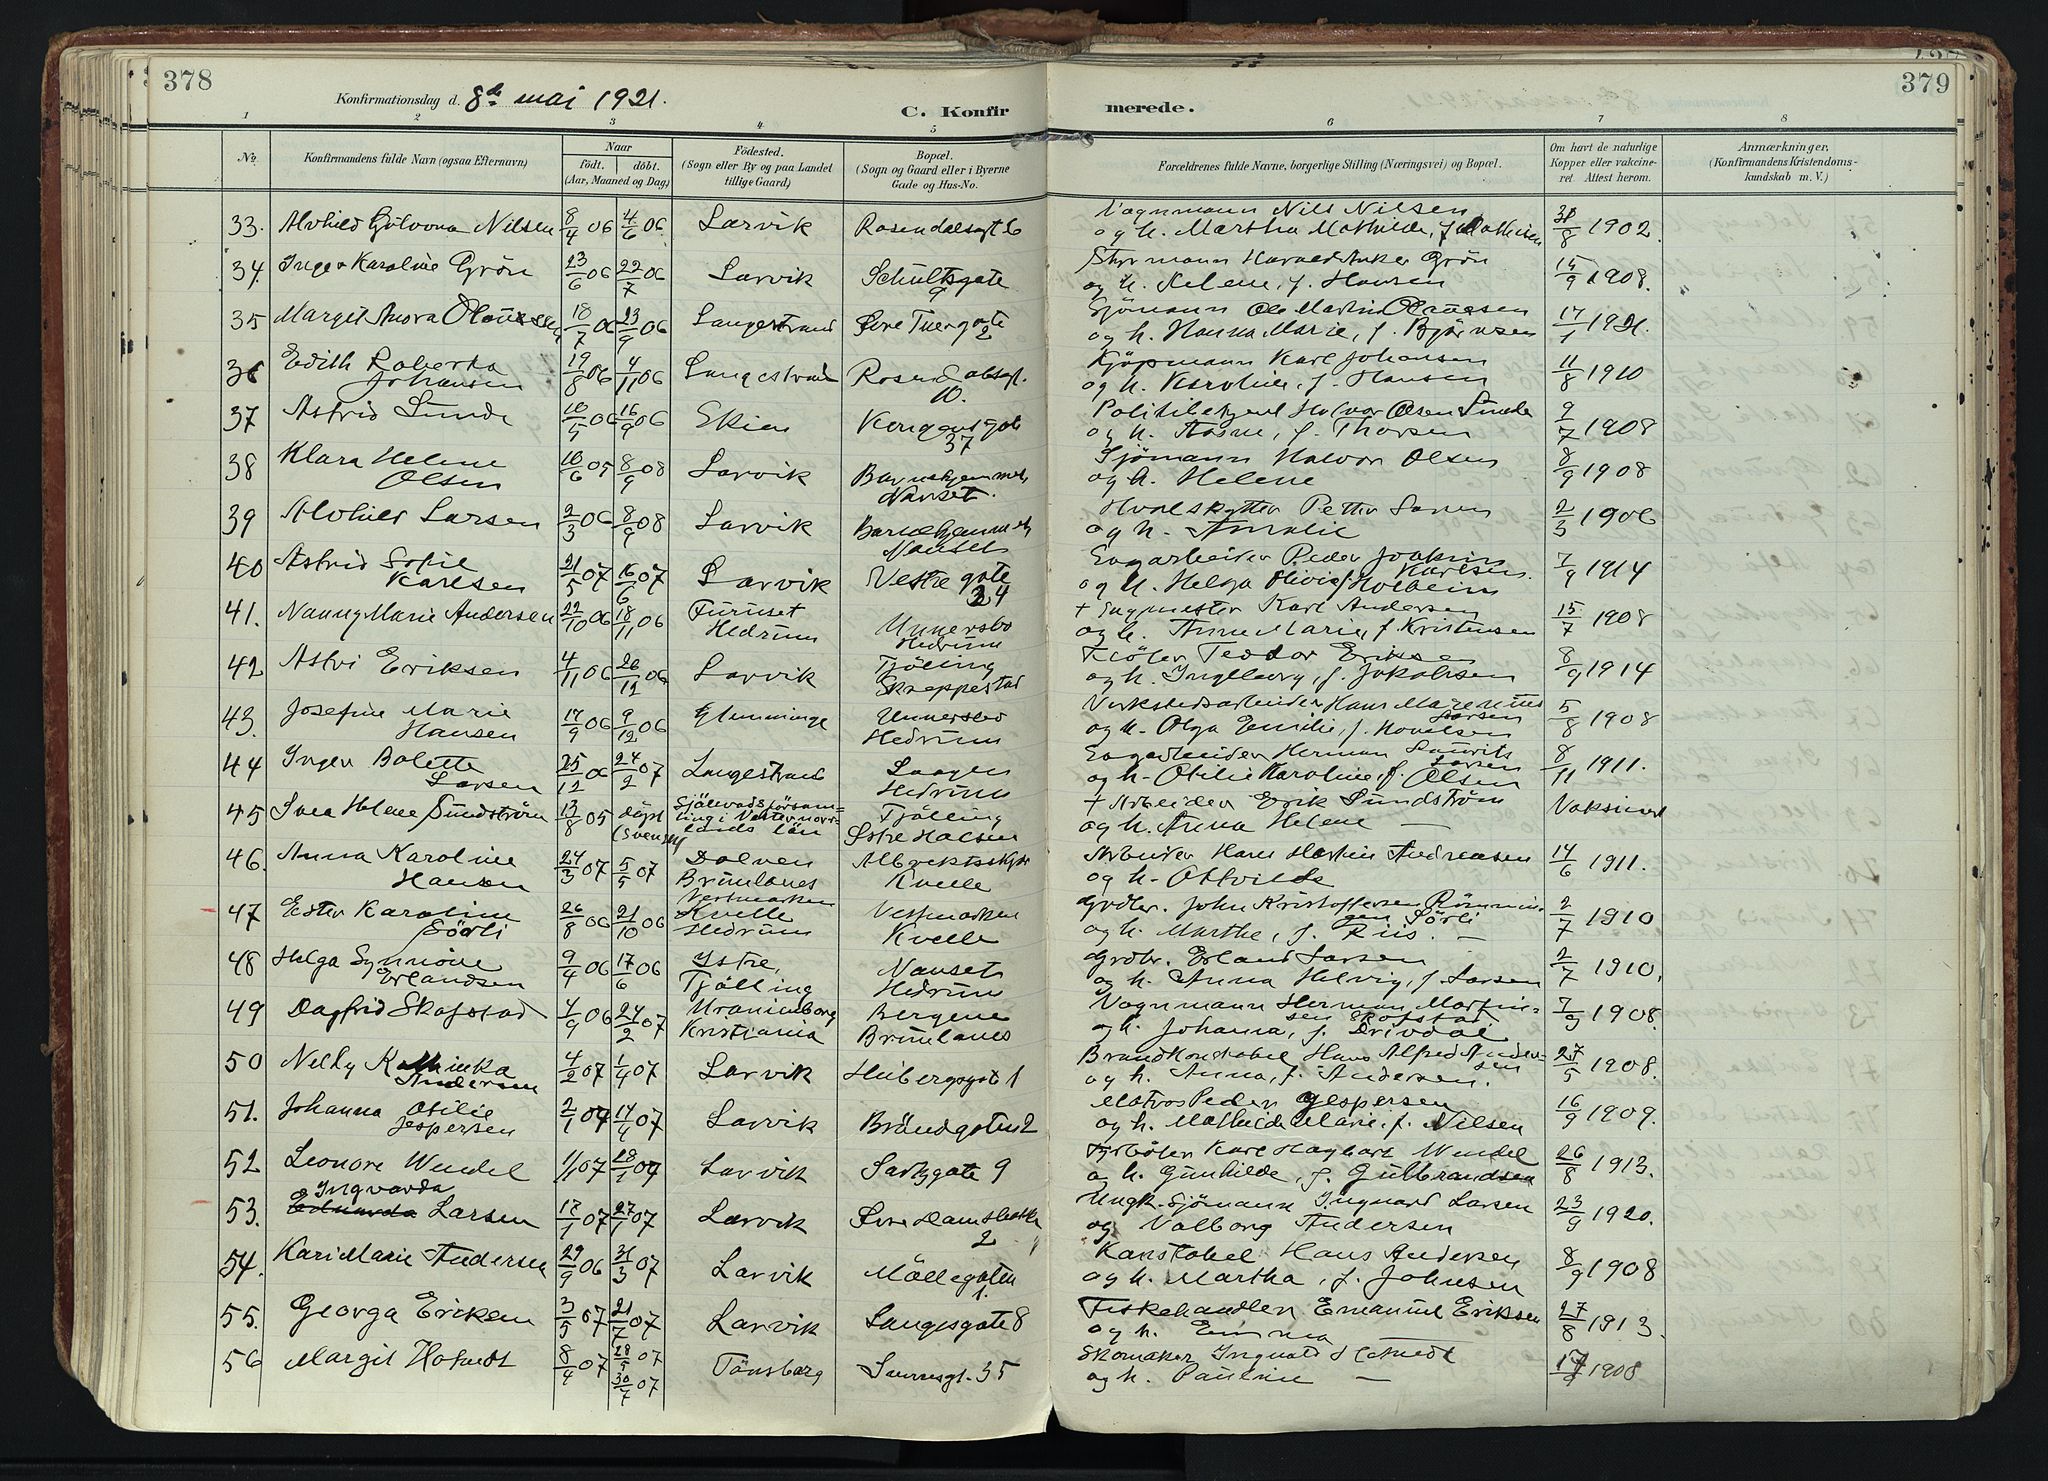 378
379
Konfirmationsdag d. 8de mai 1921.
C. Konfir merede.
1 2 3 4 5 6 7 8
No. Konfirmandens fulde Navn (ogsaa Efternavn) Naar födt. döbt. (Aar, Maaned og Dag.) Födested. (Sogn eller By og paa Landet tillige Gaard.) Bopæl. (Sogn og Gaard eller i Byerne Gade og Hus-No. Forældrenes fulde Navne, borgerlige Stilling (Næringsvei) og Bopæl. Om havt de naturlige Kopper eller vaccineret. Attest herom. Anmærkninger. (Konfirmandens Kristendomskundskab m. V.)
33. Alvhild Nilsen 8/4 06 4/6 06. Larvik Rosendalsgt 6 Vognmann Nils Nilsen
og h. Martha Mathilde, f. Mathisen 31/8 1902.
34. Inger Karoline Grön 23/6 06 22/7 06 Larvik Schultsgate 9 Styrmann Harald Anker Grön
og h. Helene, f. Hansen 15/9 1908.
35 Margit Olaussen 18/7 06 23/9 06 Langestrand Övre 2 Sjömann Ole Martin Olaussen
og h. Hanna Marie, f. Björnsen 17/1 1921.
36 Edith Roberta
Johansen 19/8 06 4/11 06 Langestrand Rosendalsgt. 10. Kjöpmann Karl Johansen
og h. Karoline, f. Hansen 11/8 1910
37 Astrid Sunde 10/5 06 16/9 06 Skien Kongensgate 37 Politibetjent Halvor Olsen Sunde
og h. Aasne, f. Thorsen 9/7 1908
38 Klara Helene
Olsen 10/6 05 8/9 08 Larvik Barnehjemmet, Nanset. Sjömann Halvor Olsen
og h. Helene 8/9 1908
39 Alvhild Larsen 2/3 06 8/9 08 Larvik Barnehjemmet, Nanset Hvalskytter Petter Larsen
og h. Amalie 2/3 1906
40 Astrid Sofie
Karlsen 21/5 07 16/6 07 Larvik Vestregate 34 Sagarbeider Peder Joakim Karlsen.
og h. Helga Olivie f. Holbein 7/9 1914
41. Nanny Marie Andersen 22/10 06 18/11 06 Furuset
Hedrum Unnersbo
Hedrum + Sagmester Karl Andersen
og h. Anne Marie, f. Kristensen 15/7 1908
42 Astri Eriksen 4/11 06 26/12 06 Larvik Tjölling
Skreppestad Teodor Eriksen
og h. Ingeborg, f. Jakobsen 8/9 1914
43. Josefine Marie
Hansen 17/9 06 9/12 06 Glemminge Unnersbo
Hedrum Verkstedsarbeider Hans Larsen
og h. Olga Emilie, f. 5/8 1908
44 Inger Bolette
Larsen 25/12 06 24/2 07 Langestrand Laagen
Hedrum Sagarbeider Herman Laurits Larsen
og h. Otilie Karoline, f. Olsen 8/11 1911.
45 Svea Helene Sundström 13/8 05 döpt (Svensk) Själevads församling i Vesternorrlands län Tjölling
Östre Halsen + Arbeider Erik Sundström
og h. Anna Helene — Vaksinert
46. Anna Karoline
Hansen 24/3 07 5/5 07 Dolven
Brunlanes
Kvelle Arbeider Hans Martin Andreasen
og h. Ottvilde 14/6 1911.
47 Ester Karoline
Sörli 26/8 06 21/10 06 Vestmarken
Kvelle
Hedrum Vestmarken
Kvelle Grdbr. John Kristoffersen Sörli
og h. Marthe, f. Riis. — 2/7 1910
48 Helga Synnöve
Erlandsen 9/4 06 17/6 06 Istre,
Tjölling Nanset
Hedrum Grdbr. Erland Larsen
og h. Anna Helvig, f. Larsen 2/7 1910.
49 Dagfrid Skofstad 4/9 06 24/2 07 Uranienborg
Kristiania Bergene
Brunlanes Vognmann Herman Martinsen Skofstad
og h. Johanna, f. Drivdal 7/9 1908.
50 Nelly Kathinka
Andersen 4/2 07 1/4 07 Larvik Heibergsgate 1 Brandkonstabel Hans Alfred Andersen
og h. Anna, f. Andersen. 27/5 1908.
51. Johanna Otilie
Jespersen 2/1 07 14/4 07 Larvik Bröndgaten 2 Matros Peder Jespersen
og h. Mathilde Marie, f. Nilsen 16/9 1909.
52 Leonore Wendel 1/1 07 28/1 07 Larvik gate 9 Fyrböter Karl Hagbart Wendel
og h. Gunhilde, f. Gulbrandsen 26/8 1913.
53. Ingvarda
Edvarda Larsen 18/1 07 27/1 07 Larvik Övre Damsbakke 2 Ungk. Sjömann Ingvard Larsen
og Valborg Andersen 23/9 1920.
54. Kari Marie Andersen 29/9 06 31/3 07 Larvik Möllegaten 1. Konstabel Hans Andersen
og h. Martha, f. Johnsen 8/9 1908
55. Georga Eriksen 3/5 07 21/7 07 Larvik Langesgate 8 Fiskehandler Emanuel Eriksen
og h. Emma 27/8 1913.
56 Margit Hofvedt 8/4 07 28/5 07
30/4 07 Tönsberg 35 Skomaker Ingvald Hofvedt
og h. Pauline — 17/9 1908